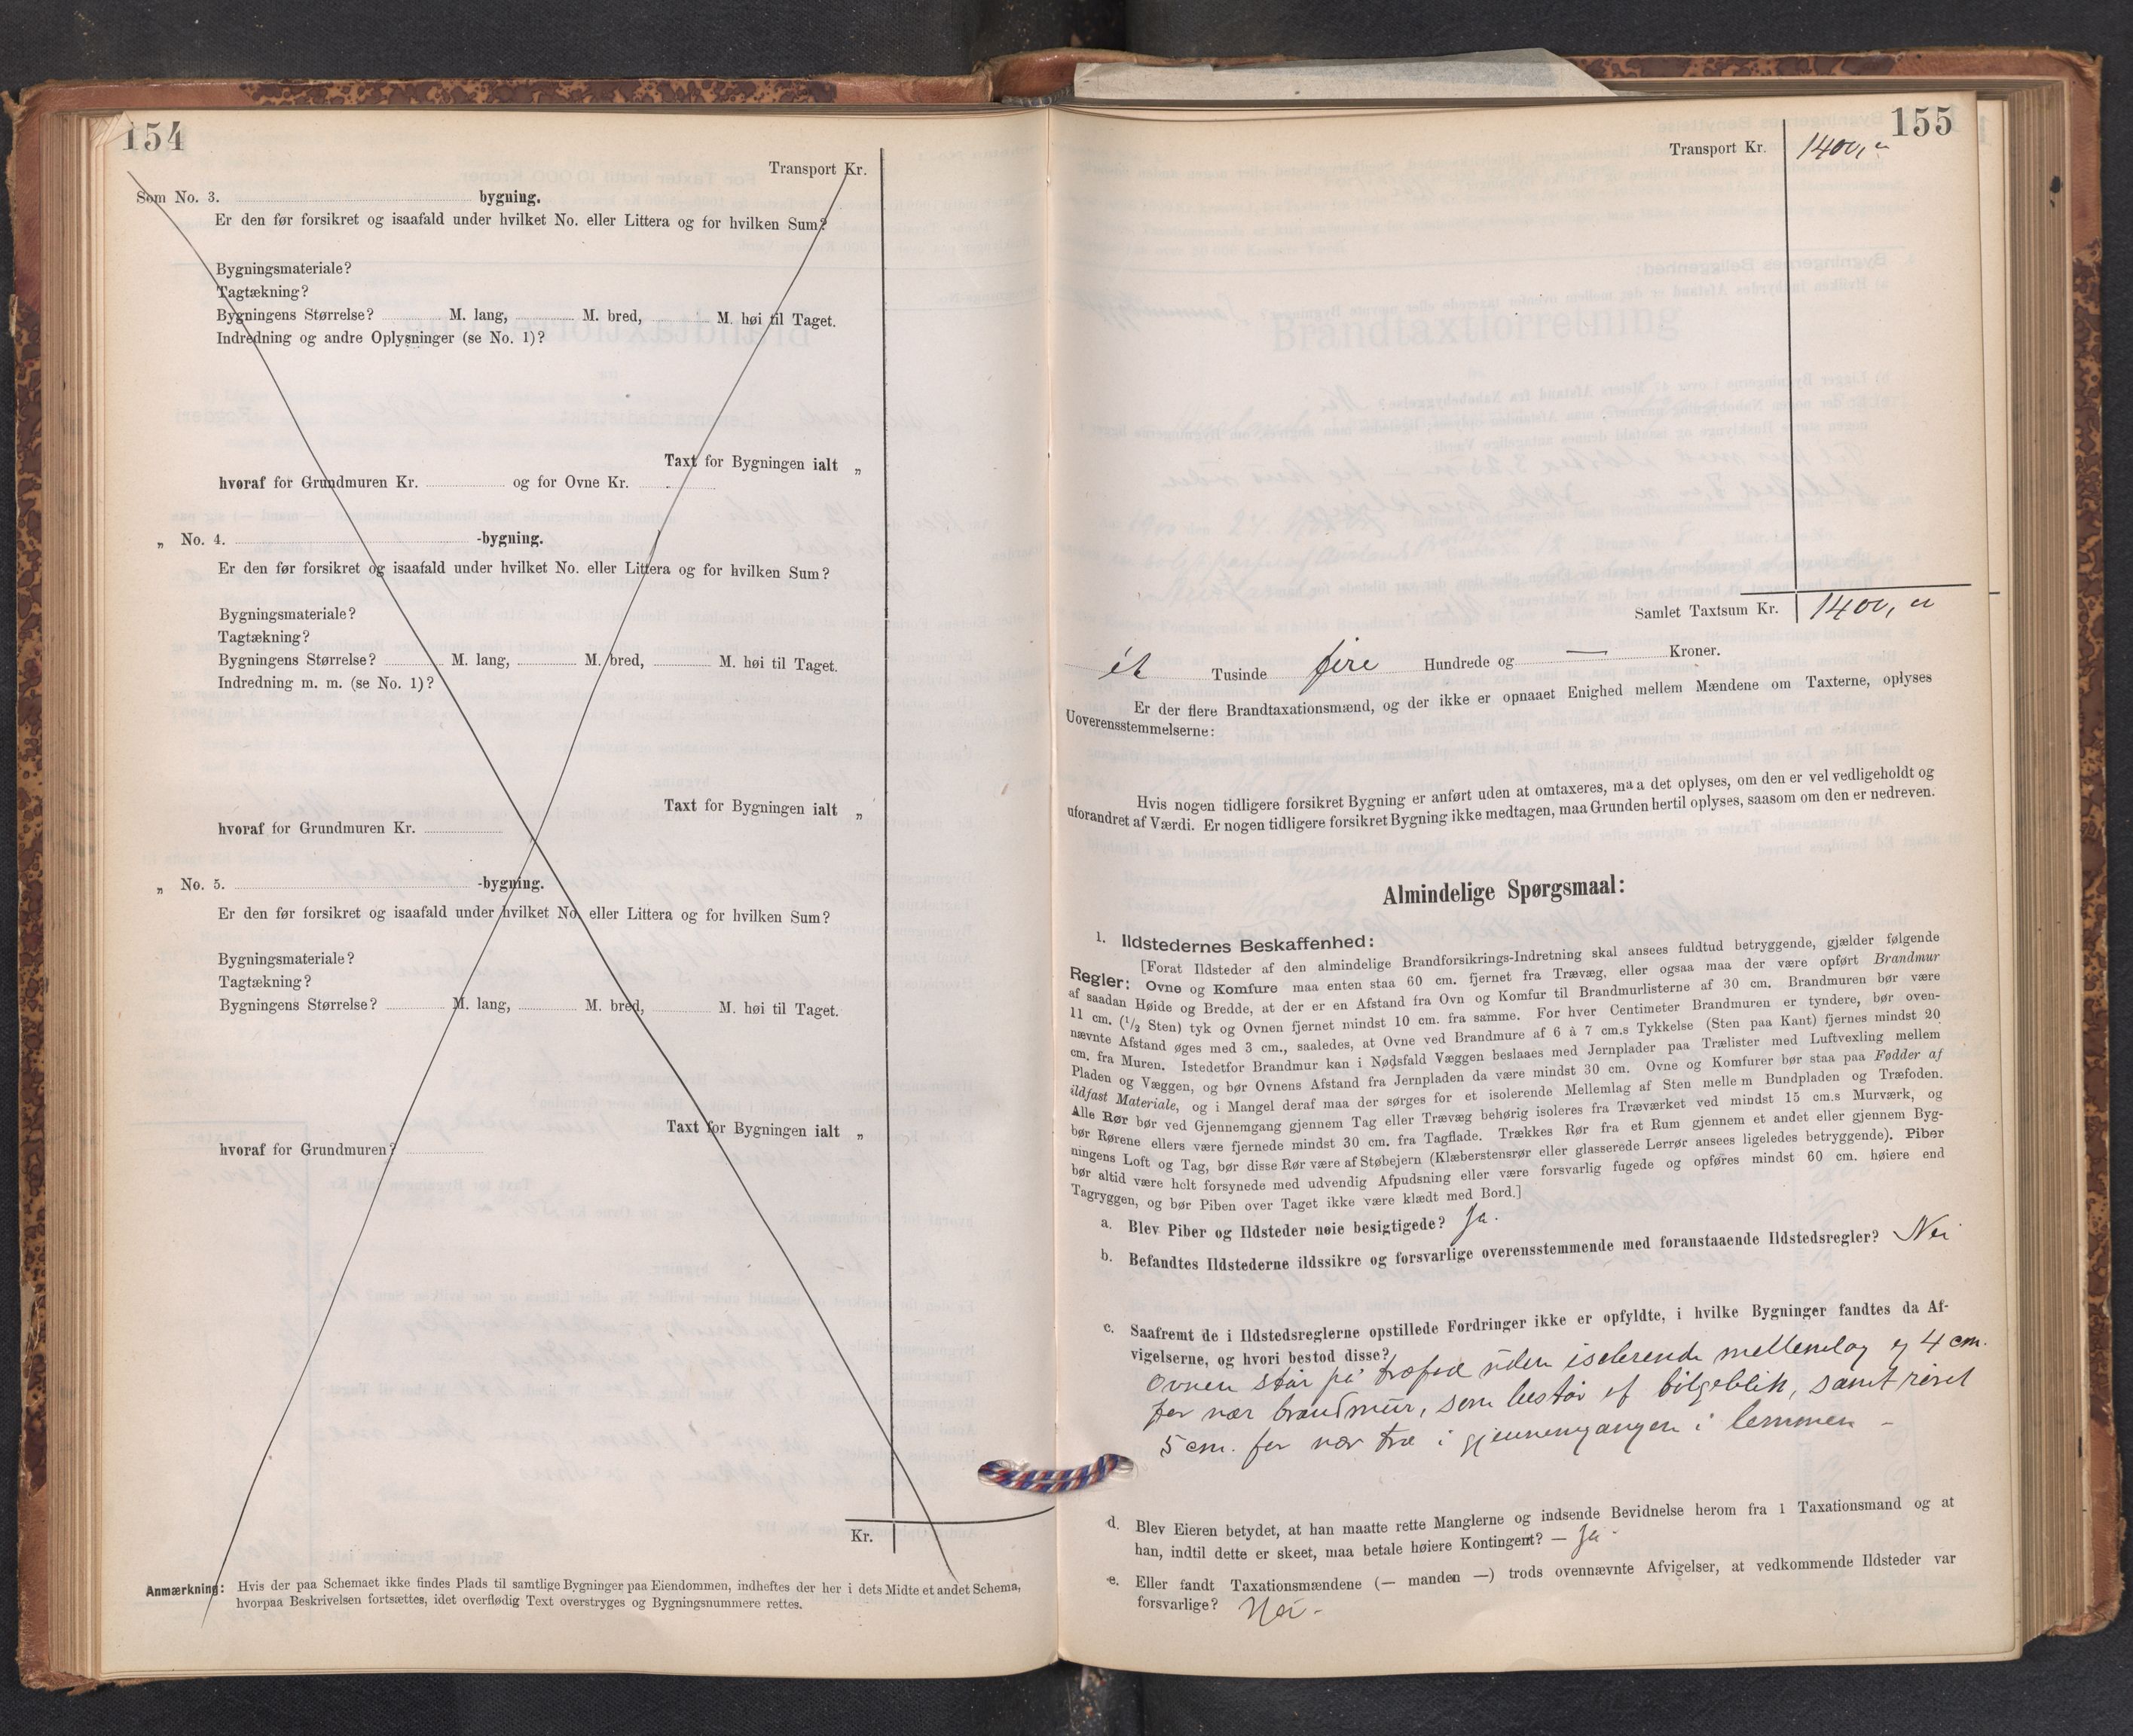 154
Transport Kr.
Som No. 3. bygning.
Er den før forsikret og isaafald under hvilket No. eller Littera og for hvilken Sum?
Bygningsmateriale?
Tagtækning?
Bygningens Størrelse? M. lang, M. bred, M. høi til Taget.
Indredning og andre Oplysninger (se No. 1)?
Taxt for Bygningen ialt „
hvoraf for Grundmuren Kr. og for Ovne Kr.
„ No. 4. -bygning.
Er den før forsikret og isaafald under hvilket No. eller Littera og for hvilken Sum?
Bygningsmateriale?
Tagtækning?
Bygningens Størrelse? M. lang, M. bred, M. høi til Taget.
Indredning m. m. (se No. 1)?
Taxt for Bygningen ialt „
hvoraf for Grundmuren Kr.
„ No. 5. -bygning.
Er den før forsikret og isaafald under hvilket No. eller Littera og for hvilken Sum?
Bygningsmateriale?
Tagtækning?
Bygningens Størrelse? M. lang, M. bred, M. høi til Taget.
Taxt for Bygningen ialt „
hvoraf for Grundmuren?
Kr.
Anmærkning: Hvis der paa Schemaet ikke findes Plads til samtlige Bygninger paa Eiendommen, indheftes der her i dets Midte et andet Schema,
hvorpaa Beskrivelsen fortsættes, idet overflødig Text overstryges og Bygningsnummere rettes.
155
Transport Kr. 1400,"
Samlet Taxtsum Kr. 1400,"
ét Tusinde fire Hundrede og — Kroner.
Er der flere Brandtaxationsmænd, og der ikke er opnaaet Enighed mellem Mændene om Taxterne, oplyses
Uoverensstemmelserne:
Hvis nogen tidligere forsikret Bygning er anført uden at omtaxeres, maa det oplyses, om den er vel vedligeholdt og
uforandret af Værdi. Er nogen tidligere forsikret Bygning ikke medtagen, maa Grunden hertil oplyses, saasom om den er nedreven.
Almindelige Spørgsmaal:
1. Ildstedernes Beskaffenhed:
[Forat Ildsteder af den almindelige Brandforsikrings-Indretning skal ansees fuldtud betryggende, gjælder følgende
Regler: Ovne og Komfure maa enten staa 60 cm. fjernet fra Trævæg, eller ogsaa maa der være opført Brandmur
af saadan Høide og Bredde, at der er en Afstand fra Ovn og Komfur til Brandmurlisterne af 30 cm. Brandmuren bør være
11 cm. (1/2 Sten) tyk og Ovnen fjernet mindst 10 cm. fra samme. For hver Centimeter Brandmuren er tyndere, bør oven-
nævnte Afstand øges med 3 cm., saaledes, at Ovne ved Brandmure af 6 à 7 cm.s Tykkelse (Sten paa Kant) fjernes mindst 20
cm. fra Muren. Istedetfor Brandmur kan i Nødsfald Væggen beslaaes med Jernplader paa Trælister med Luftvexling mellem
Pladen og Væggen, og bør Ovnens Afstand fra Jernpladen da være mindst 30 cm. Ovne og Komfurer bør staa paa Fødder af
ildfast Materiale, og i Mangel deraf maa der sørges for et isolerende Mellemlag af Sten mellem Bundpladen og Træfoden.
Alle Rør bør ved Gjennemgang gjennem Tag eller Trævæg behørig isoleres fra Træværket ved mindst 15 cm.s Murværk, og
bør Rørene ellers være fjernede mindst 30 cm. fra Tagflade. Trækkes Rør fra et Rum gjennem et andet eller gjennem Byg-
ningens Loft og Tag, bør disse Rør være af Støbejern (Klæberstensrør eller glasserede Lerrør ansees ligeledes betryggende). Piber
bør altid være helt forsynede med udvendig Afpudsning eller være forsvarlig fugede og opføres mindst 60 cm. høiere end
Tagryggen, og bør Piben over Taget ikke være klædt med Bord.]
a. Blev Piber og Ildsteder nøie besigtigede? Ja.
b. Befandtes Ildstederne ildssikre og forsvarlige overensstemmende med foranstaaende Ildstedsregler? Nei
c. Saafremt de i Ildstedsreglerne opstillede Fordringer ikke er opfyldte, i hvilke Bygninger fandtes da Af-
vigelserne, og hvori bestod disse?
Ovnen står på træfod uden isolerende mellemlag og 4 cm.
for nær brandmur, som består af bølgeblik, samt røret
5 cm. for nær træ i gjennemgangen i lemmen -
d. Blev Eieren betydet, at han maatte rette Manglerne og indsende Bevidnelse herom fra 1 Taxationsmand og at
han, indtil dette er skeet, maa betale høiere Kontingent? — Ja -
e. Eller fandt Taxationsmændene (— manden —) trods ovennævnte Afvigelser, at vedkommende Ildsteder var
forsvarlige? Nei -